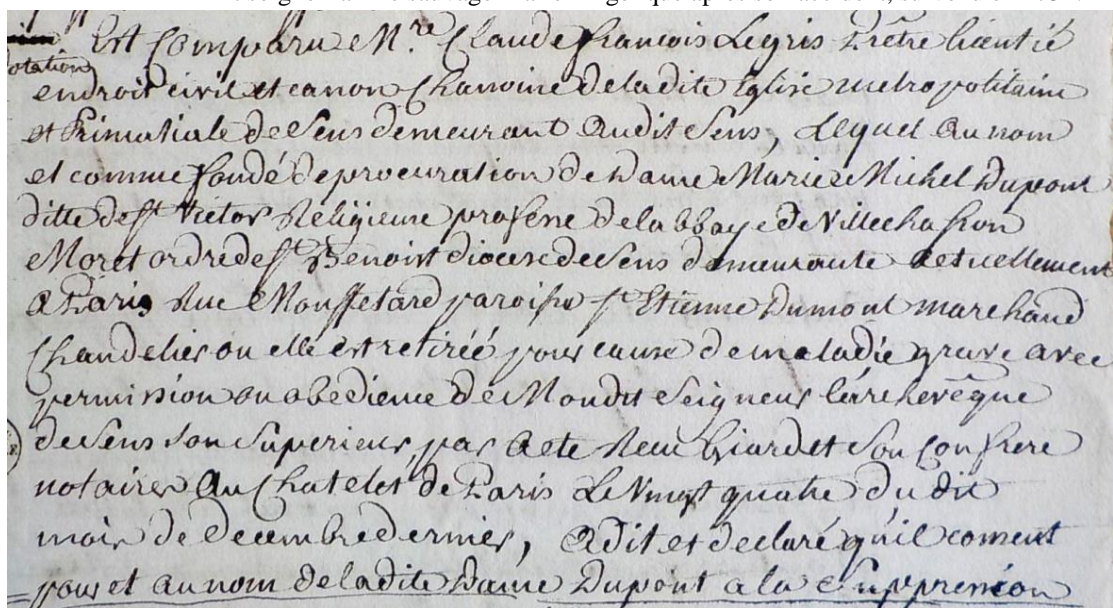 Est Comparu Mre Claude francois Legris Prêtre licentié
otation
en droit civil et canon Chanoine de la dite Eglise metropolitaine
et Primatiale de Sens demeurant audit Sens, Lequel au nom
et comme fondé de procuration de Dame Marie Michel Dupont
ditte de St Victor Religieuse professe de labbaye de Villechasson
Moret ordre de St Benoist diocese de Sens demeurante actuellement
a Paris Rue Mouffetard paroisse St Etienne Dumont marchand
Chandelier ou elle est retirée pour cause de maladie grave avec
permission ou obedience de Mondit Seigneur larchevêque
de Sens son Superieur par acte Receu et Son Confrere
notaires au Chatelet de Paris Le Vingt quatre du dit
mois de Decembre dernier, a dit et declaré qu'il consent
pour et au nom de ladite Dame Dupont a la Suppression